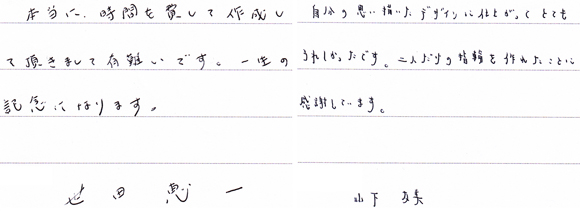 本当に、時間を費して作成し
て頂きまして有難いです。一生の
記念になります。
世田 恵一
自分の思い描いたデザインに仕上がってとても
うれしかったです。二人だけの指輪を作れたことに
感謝しています。
山下